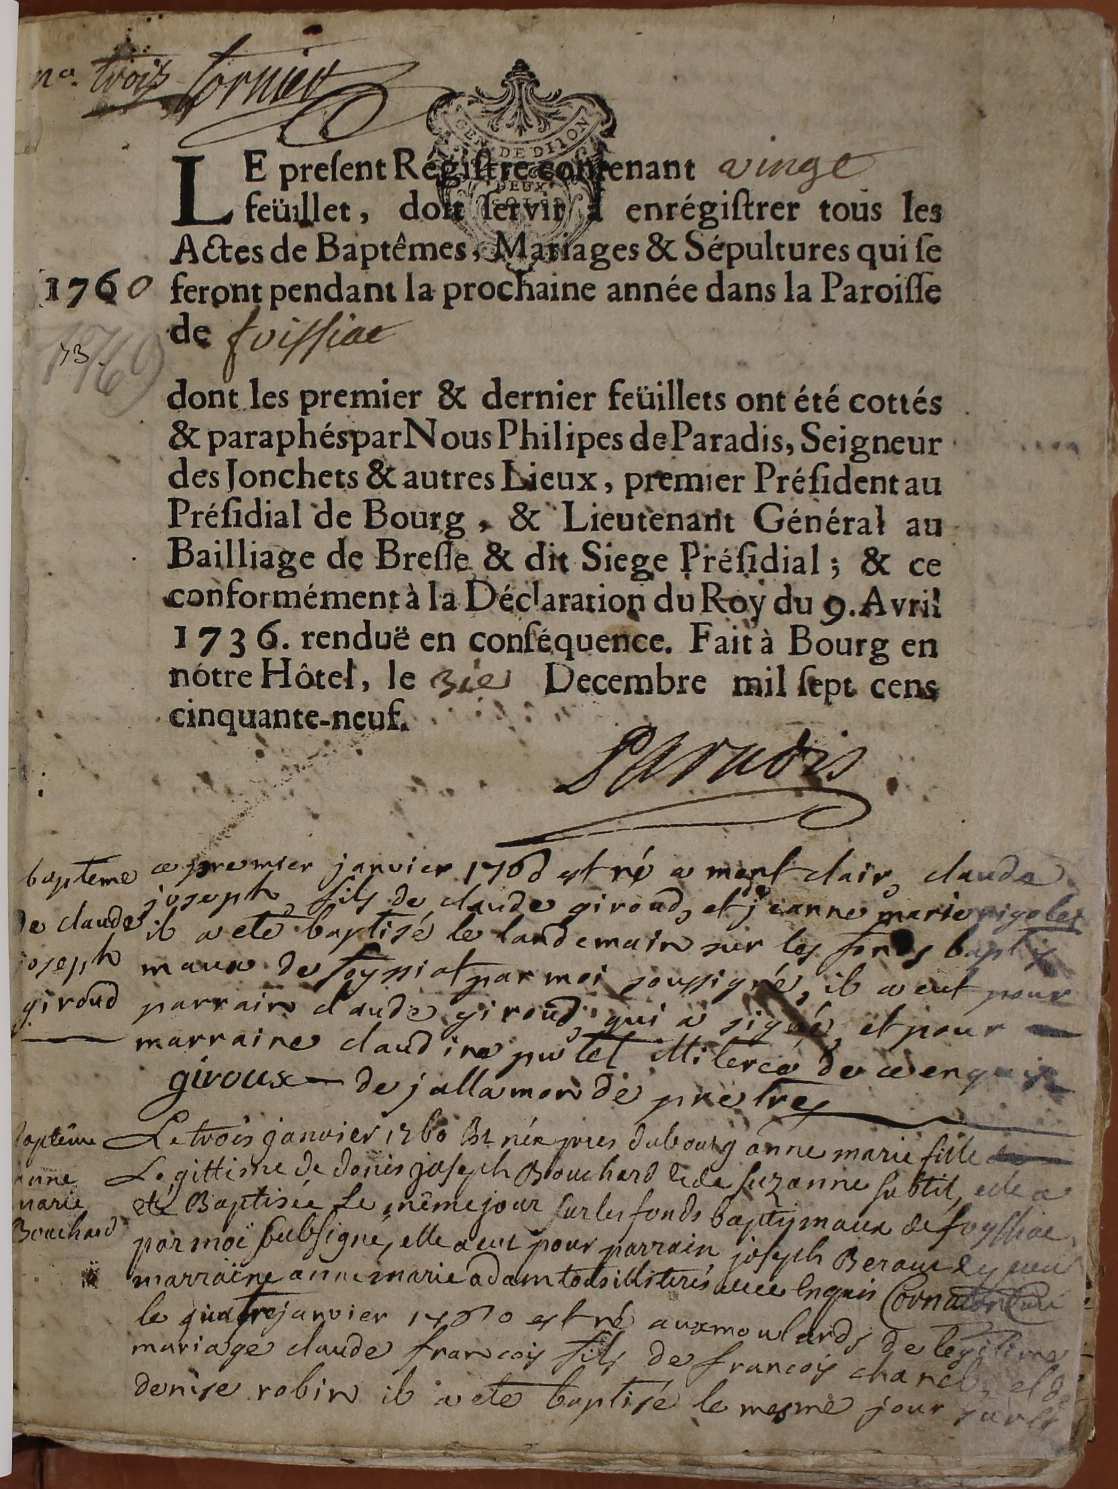 no. trois Tornier
GEN. DE DIJON
DEUX
SOLS
LE preſent Regiſtre contenant vingt
feüillet, doit ſervir à enrégiſtrer tous les
Actes de Baptêmes, Mariages & Sépultures qui ſe
1760 feront pendant la prochaine année dans la Paroiſſe
de foissiac
1769
73.
dont les premier & dernier feüillets ont été cottés
& paraphés par Nous Philipes de Paradis, Seigneur
des Jonchets & autres Lieux, premier Préſident au
Préſidial de Bourg, & Lieutenant Général au
Bailliage de Breſſe & dit Siege Préſidial ; & ce
conformément à la Déclaration du Roy du 9. Avril
1736. renduë en conſéquence. Fait à Bourg en
nôtre Hôtel, le 31e Decembre mil ſept cens
cinquante-neuf.
Paradis
bapteme
de claude
joseph
giroud
ce premier janvier 1760 est né a mont clair, claude
joseph, fils de claude giroud, et de jeanne marie pigolet
il a eté baptisé le landemain sur les fonds baptis
maux de foyssiat par moi soussigné, il a eut pour
parrain claude giroud, qui a signé, et pour
marraine claudine putet illiteree de ce enquise
giroux de jallamonde pretre
baptême
anne
marie
Bouchard
Le trois janvier 1760 Est née pres du bourg anne marie fille
Legittime de denis joseph Bouchard & de Suzanne subtil, elle a
eté Baptisée Le même jour sur les fonds baptismaux de foyssiac
par moi Soubsigné, elle a eut pour parrain joseph Beraud &
marraine anne marie adam tous illiterés avec Enquis Cornaton
le quatre janvier 1760 est né aux moulards de legitime
mariage claude francois fils de francois chanel, et de
denise robin il a eté baptisé le mesme jour sur les